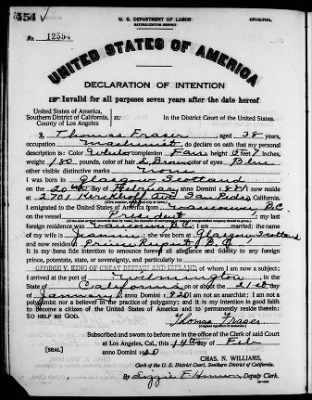 454
U. S. DEPARTMENT OF LABOR
NATURALIZATION SERVICE
ORIGINAL
No.
UNITED STATES OF AMERICA
DECLARATION OF INTENTION
Invalid for all purposes seven years after the date hereof
United States of America,
Southern District of California,
County of Los Angeles
ss:
In the District Court of the United States.
I, Thomas Fraser, aged 38 years,
occupation Machinist, do declare on oath that my personal
description is: Color White, complexion Fair, height 5 feet inches,
weight 180 pounds, color of hair Brown, color of eyes Blue
other visible distinctive marks None
I was born in Glasgow Scotland
on the 20th day of February, anno Domini 1; I now reside
at 2701 San Pedro, California.
I emigrated to the United States of America from Vancouver B.C.
on the vessel President; my last
foreign residence was Vancouver B.C.; I am married; the name
of my wife is Jeannie; she was born at Glasgow Scotland
and now resides at Prince Rupert B.C.
It is my bona fide intention to renounce forever all allegiance and fidelity to any foreign
prince, potentate, state, or sovereignty, and particularly to
GEORGE V, KING OF GREAT BRITAIN AND IRELAND, of whom I am now a subject;
I arrived at the port of Wilmington, in the
State of California, on or about the 21st day
of January, anno Domini 1920; I am not an anarchist; I am not a
polygamist nor a believer in the practice of polygamy; and it is my intention in good faith
to become a citizen of the United States of America and to permanently reside therein:
SO HELP ME GOD.
Thomas Fraser
Subscribed and sworn to before me in the office of the Clerk of said Court
at Los Angeles, Cal., this 14th day of Feb
[SEAL]
anno Domini 1920
CHAS. N. WILLIAMS,
Clerk of the U. S. District Court, Southern District of California.
By Lizzie F., Deputy Clerk.